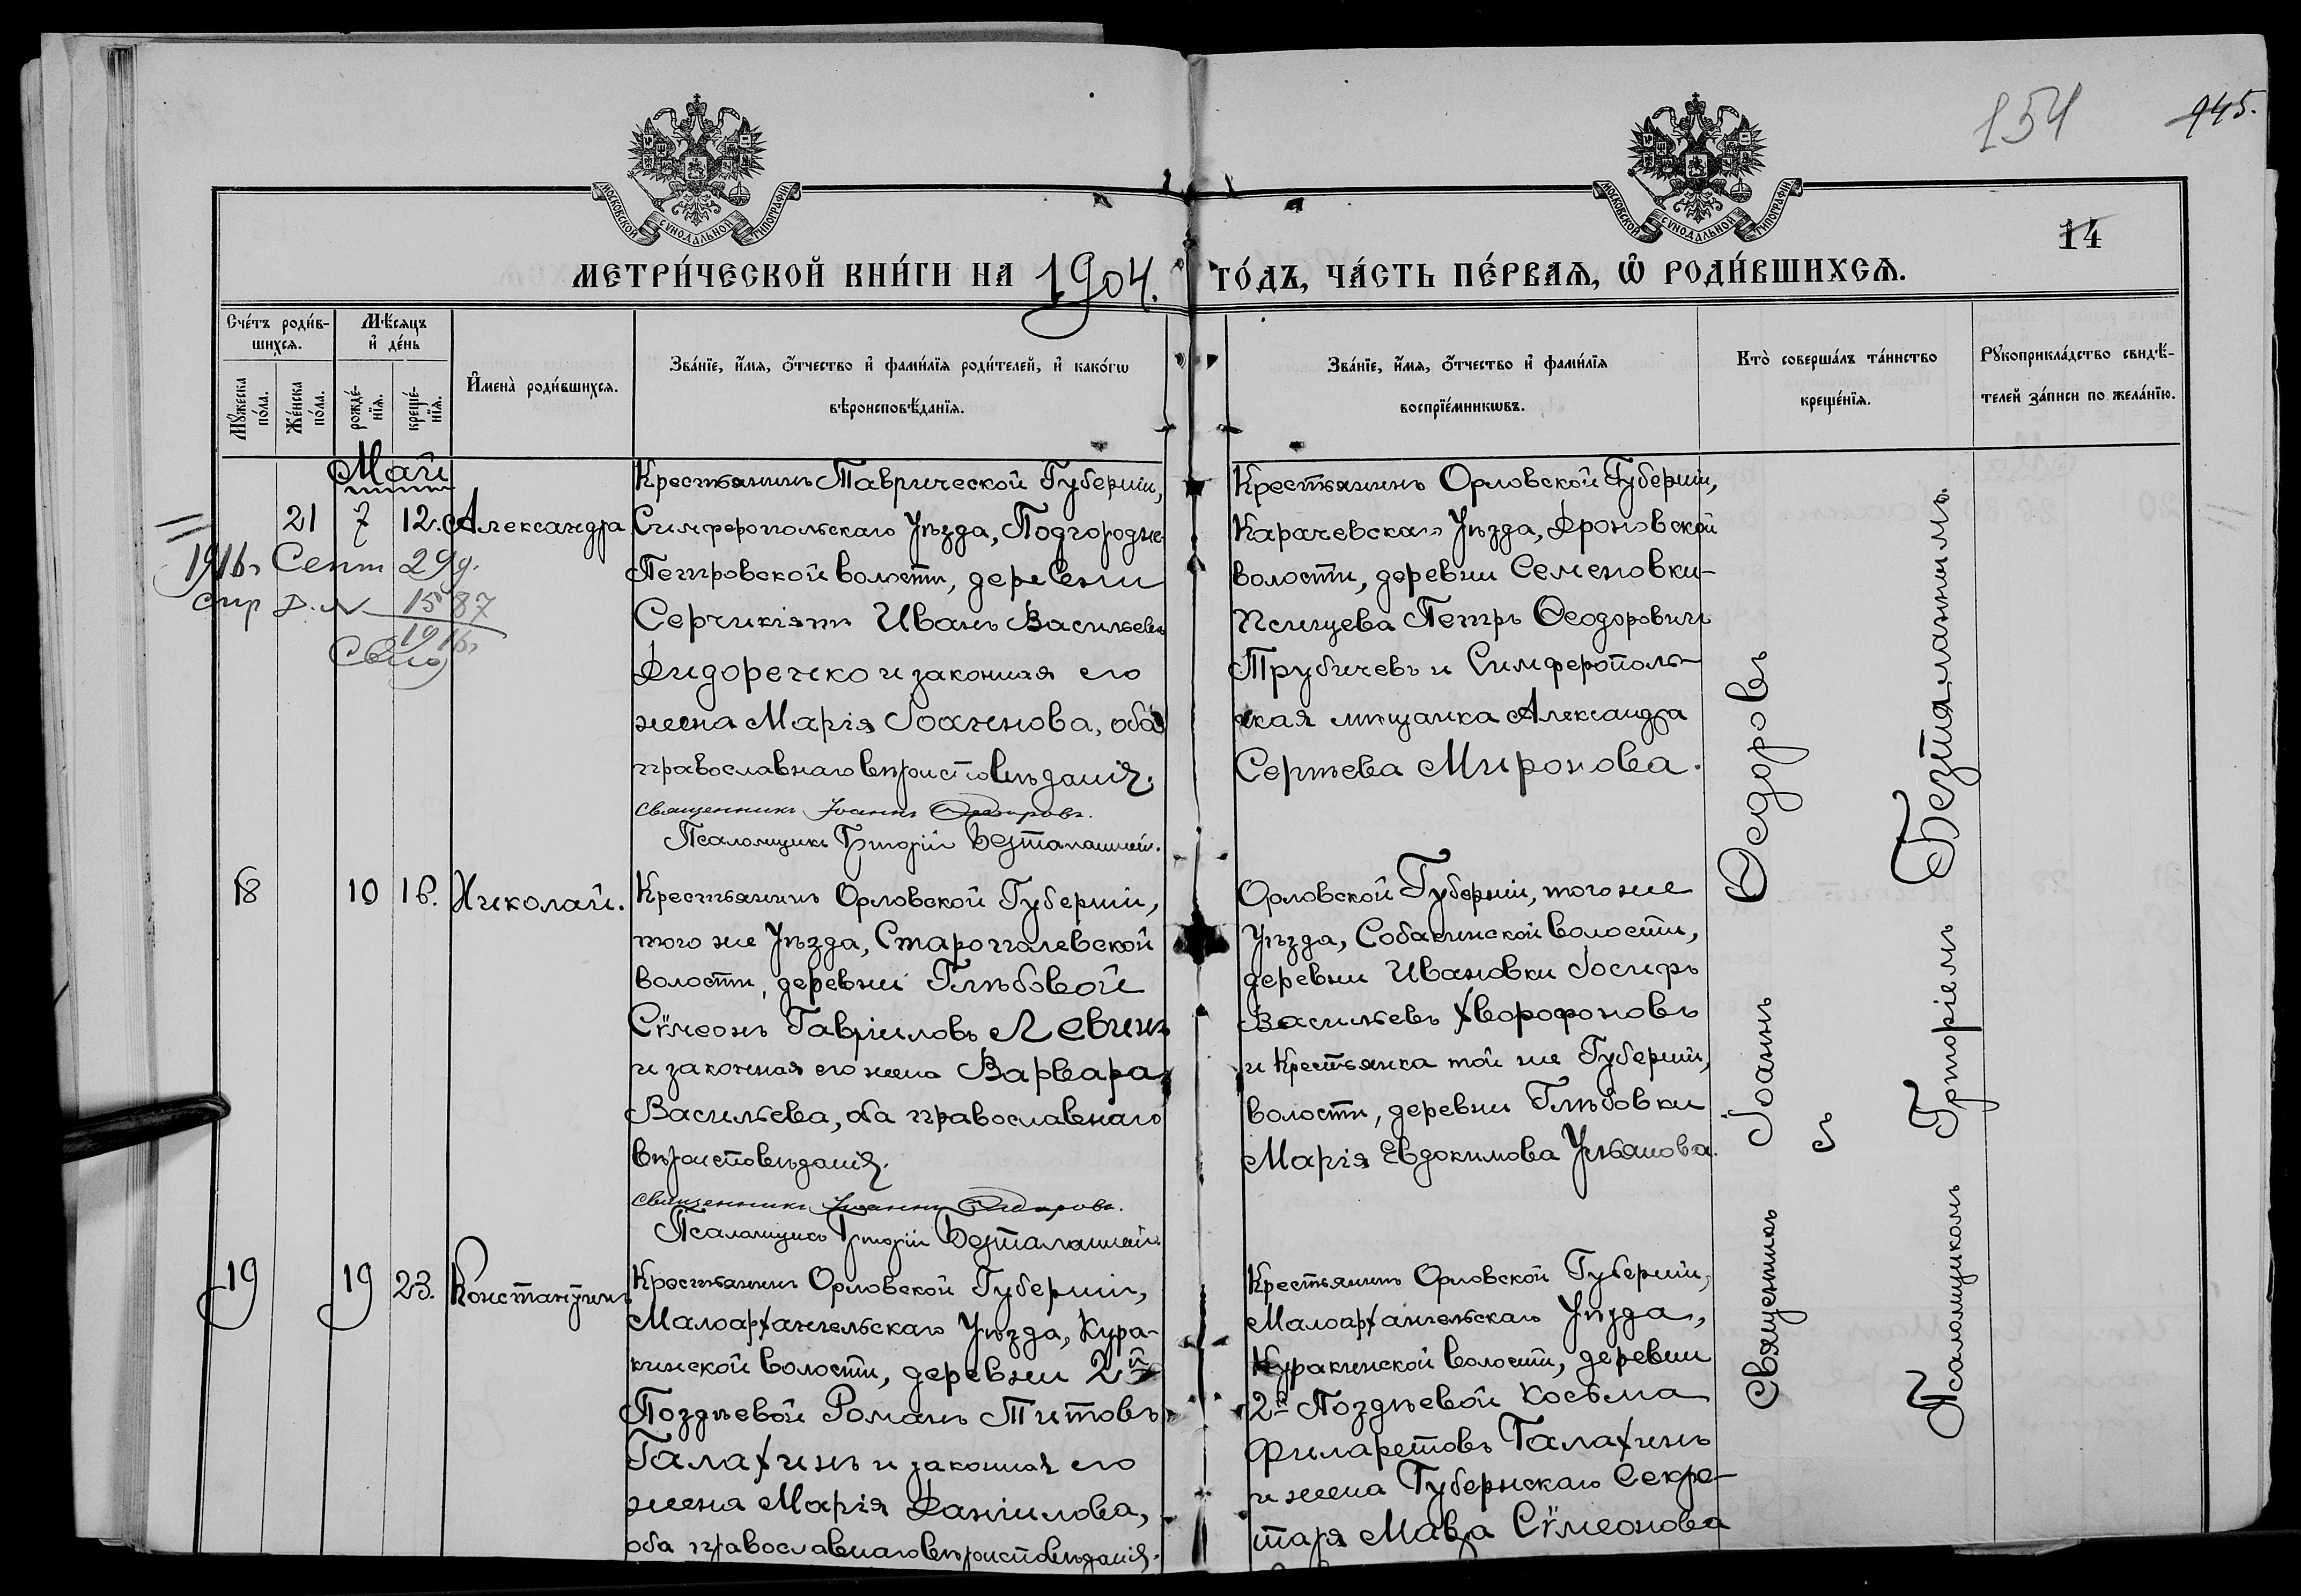 154
945.
МОСКОВСКОЙ СѴНОДАЛЬНОЙ ТИПОГРАФІИ
МОСКОВСКОЙ СѴНОДАЛЬНОЙ ТИПОГРАФІИ
14
МЕТРИ́ЧЕСКОЙ КНИ́ГИ НА 1904. ГО́ДЪ, ЧА́СТЬ ПЕ́РВАѦ, Ѡ҆ РОДИ́ВШИХСѦ.
Сче́тъ роди́в-
шихсѧ.
Мꙋ́жеска
по́ла.
Же́нска
по́ла.
Мѣ́сѧцъ
и҆ де́нь
рожде́-
нїѧ.
креще́-
нїѧ.
И҆мена̀ роди́вшихсѧ.
Зва́нїе, и҆́мѧ, ѻ҆́тчество и҆ фами́лїѧ роди́телей, и҆ како́гѡ
вѣроисповѣ́данїѧ.
Зва́нїе, и҆́мѧ, ѻ҆́тчество и҆ фами́лїѧ
воспрїе́мникѡвъ.
Кто̀ соверша́лъ та́инство
креще́нїѧ.
Рꙋкоприкла́дство свидѣ́-
телей за́писи по жела́нїю.
Май
21 7 12. Александра
1916г Сент 29 д.
1587
1916г
Крестьянинъ Таврической Губерніи,
Симферопольскаго Уѣзда, Подгородне
Петровской волости, деревни
Серчикіятъ Иванъ Васильевъ
Дидоренко и законная его
жена Марія Іоаннова, оба
православнаго вѣроисповѣданія.
Священникъ Іоаннъ Ѳедоровъ.
Псаломщикъ Григорій Безталанный.
Крестьянинъ Орловской Губерніи,
Карачевскаго Уѣзда, Дроновской
волости, деревни Семеновки-
Псищева Петръ Ѳеодоровичъ
Трубичевъ и Симферополь-
ская мѣщанка Александра
Сергѣева Миронова.
18 10 16. Николай.
Крестьянинъ Орловской Губерніи,
того же Уѣзда, Старогналевской
волости, деревни Глѣбовой
Сѵмеонъ Гавріиловъ Левинъ
и законная его жена Варвара
Васильева, оба православнаго
вѣроисповѣданія.
Священникъ Іоаннъ Ѳедоровъ.
Псаломщикъ Григорій Безталанный
Орловской Губерніи, того же
Уѣзда, Собакинской волости,
деревни Ивановки Іосифъ
Васильевъ Хворофоновъ
и Крестьянка той же Губерніи,
волости, деревни Глѣбовки
Марія Евдокимова Ульянова.
19 19 23. Константинъ
Крестьянинъ Орловской Губерніи,
Малоархангельскаго Уѣзда, Кура-
кинской волости, деревни 2й
Позднѣевой Романъ Титовъ
Галахинъ и законная его
жена Марія Даніилова,
оба православнаго вѣроисповѣданія.
Крестьянинъ Орловской Губерніи,
Малоархангельскаго Уѣзда,
Куракинской волости, деревни
2й Позднѣевой Косьма
Филаретовъ Галахинъ
и жена Губернскаго Секре-
таря Мавра Сѵмеонова
Священникъ Іоаннъ Ѳедоровъ
съ
Псаломщикомъ Григоріемъ Безталаннымъ.